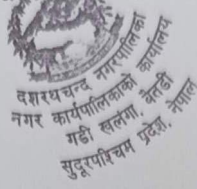 दशरथचन्द नगरपालिका
नगर कार्यपालिकाको कार्यालय
गढी खलंगा, बैतडी
सुदूरपश्चिम प्रदेश, नेपाल